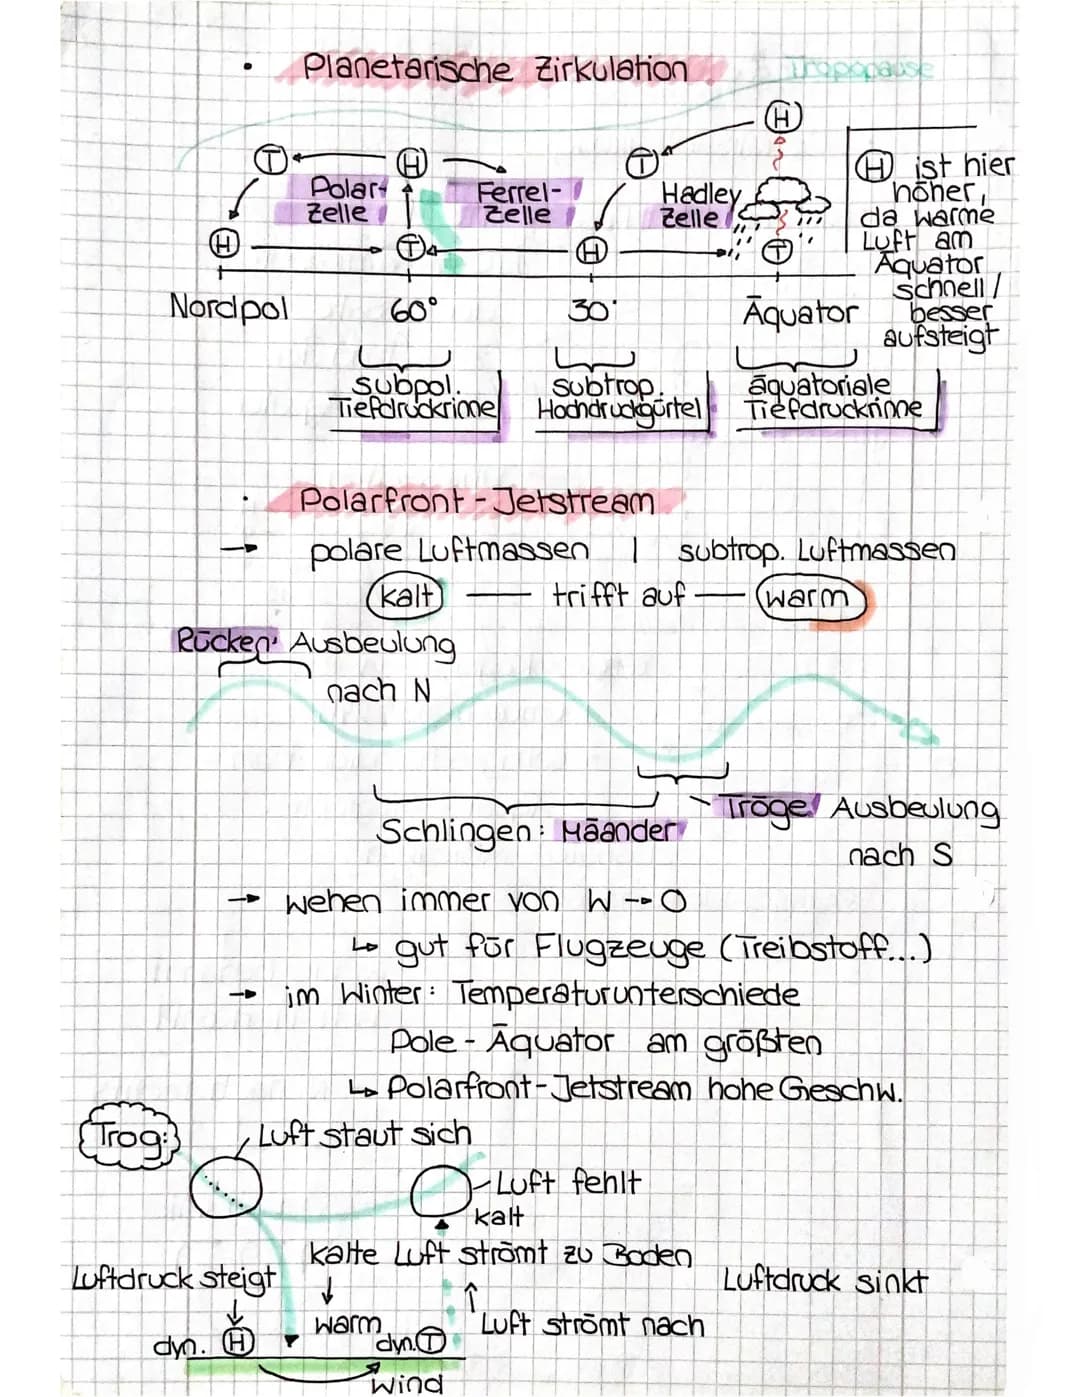 • Planetarische Zirkulation
Tropopause
H
T H T
H ist hier
höher,
da warme
Luft am
Äquator
schnell/
besser
aufsteigt
Polar-
zelle
Ferrel-
zelle
Hadley
Zelle
H T H T
Nordpol 60° 30° Äquator
subpol.
Tiefdruckrinne
subtrop.
Hochdruckgürtel
äquatoriale
Tiefdruckrinne
• Polarfront-Jetstream
→ polare Luftmassen | subtrop. Luftmassen
kalt — trifft auf — warm
Rücken: Ausbeulung
nach N
Schlingen: Mäander
Tröge: Ausbeulung
nach S
→ wehen immer von W → O
↳ gut für Flugzeuge (Treibstoff...)
→ im Winter: Temperaturunterschiede
Pole - Äquator am größten
↳ Polarfront-Jetstream hohe Geschw.
Trog:
Luft staut sich
Luft fehlt
kalt
kalte Luft strömt zu Boden
Luftdruck steigt
Luftdruck sinkt
warm
Luft strömt nach
dyn. H
dyn. T
Wind